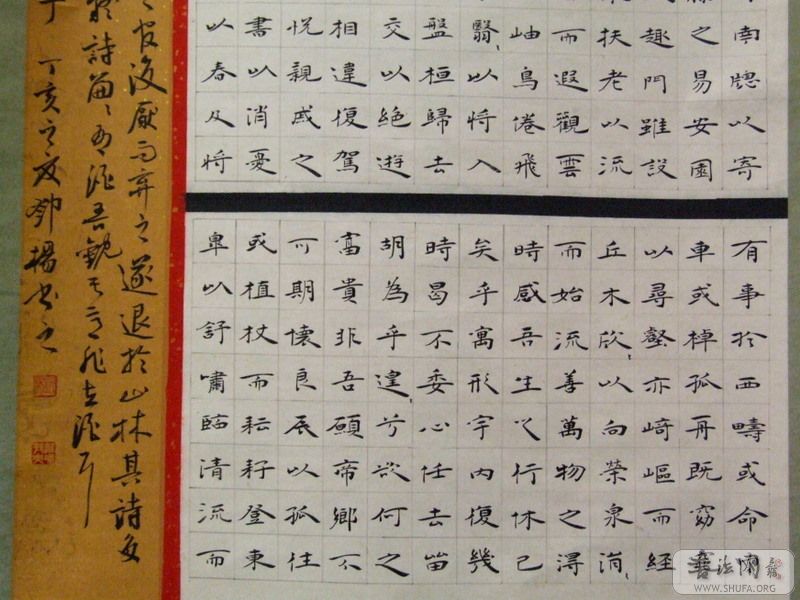 南牕以寄
之易安園
趣門雖設
扶老以流
而遐觀雲
岫鳥倦飛
翳以將入
盤桓歸去
交以絕遊
相違復駕
悅親戚之
書以消憂
以春及將
有事於西疇或命
車或棹孤舟既窈
以尋壑亦崎嶇而經
丘木欣以向榮泉涓
而始流善萬物之得
時感吾生之行休已
矣乎寓形宇內復幾
時曷不委心任去留
胡為乎遑兮欲何之
富貴非吾願帝鄉不
可期懷良辰以孤往
或植杖而耘耔登東
皐以舒嘯臨清流而
復厭而弃之遂退於山林其詩文
詩
丁亥之夏鄧楊書之
書法網
WWW.SHUFA.ORG